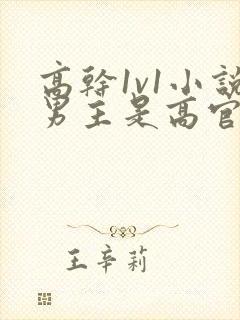 高幹1v1小說
男主是高官
王辛莉